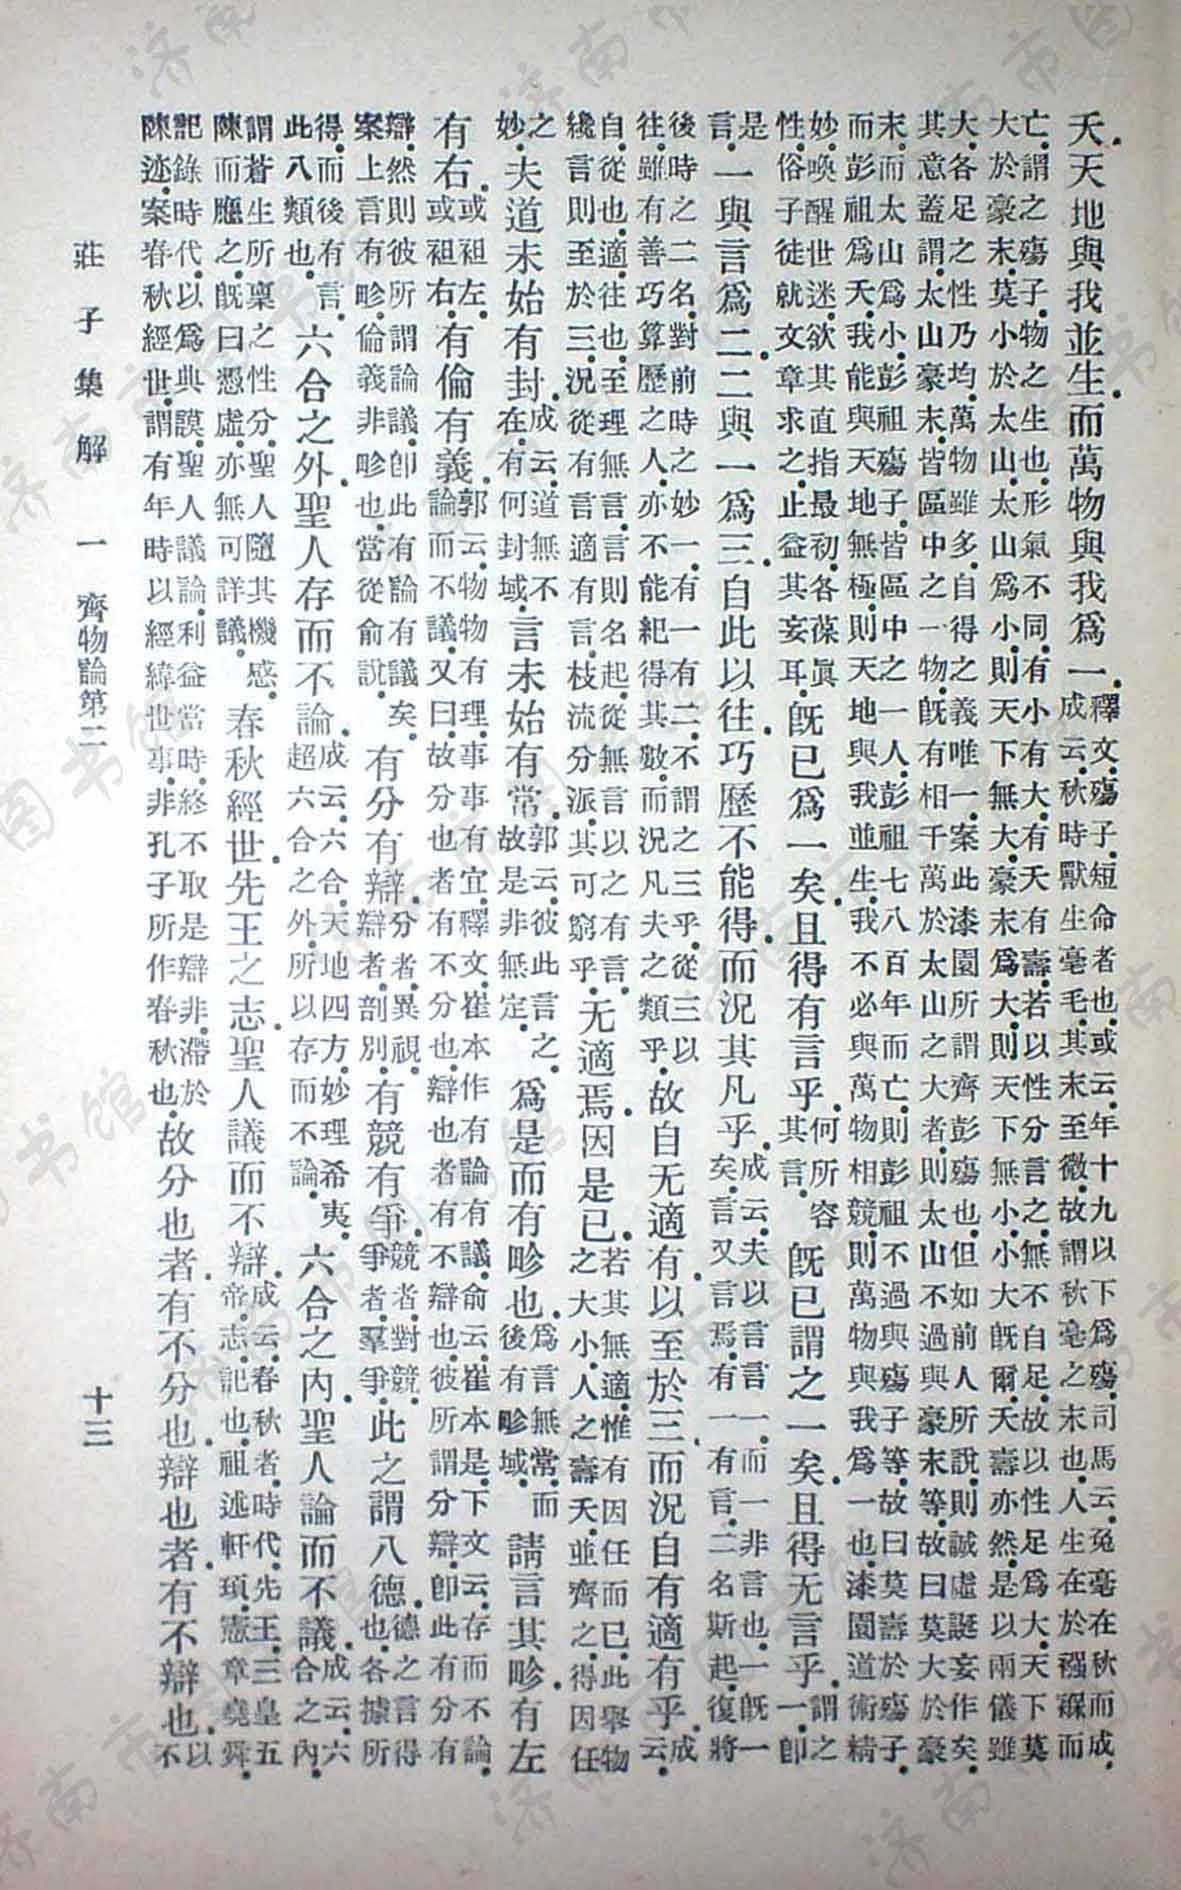 夭。天地與我並生。而萬物與我爲一。
釋文。殤子。短命者也。或云。年十九以下爲殤。司馬云。兔毫在秋而成。
成云。秋時獸生毫毛。其末至微。故謂秋毫之末也。人生在於襁褓而
亡。謂之殤子。物之生也。形氣不同。有小有大。有夭有壽。若以性分言之。無不自足。故以性足爲大。天下莫
大於豪末。莫小於太山。太山爲小。則天下無大。豪末爲大。則天下無小。小大既爾。夭壽亦然。是以兩儀雖
大。各足之性乃均。萬物雖多。自得之義唯一。案此漆園所謂齊彭殤也。但如前人所說。則誠虛誕妄作矣。
其意蓋謂太山豪末。皆區中之一物。既有相千萬於太山之大者。則太山不過與豪末等。故曰莫大於豪
末。而太山爲小。彭祖殤子。皆區中之一人。彭祖七八百年而亡。則彭祖不過與殤子等。故曰莫壽於殤子。
而彭祖爲夭。我能與天地無極。則天地與我並生。我不必與萬物相競。則萬物與我爲一也。漆園道術精
妙。喚醒世迷。欲其直指最初。各葆眞
性。俗子徒就文章求之。止益其妄耳。
既已爲一矣。且得有言乎。
何所容
其言。
既已謂之一矣。且得无言乎。
謂之
一。卽
是
言。
一與言爲二。二與一爲三。自此以往。巧歷不能得。而況其凡乎。
成云。夫以言言一。而一非言也。一既一
矣。言又言焉。有一有言。二名斯起。復將
後時之二名。對前時之妙一。有一有二。不謂之三乎。從三以
往。雖有善巧算歷之人。亦不能紀得其數。而況凡夫之類乎。
故自无適有。以至於三。而況自有適有乎。
成
云。
自。從也。適。往也。至理無言。言則名起。從無言以之有言。
纔言則至於三。況從有言適有言。枝流分派。其可窮乎。
无適焉。因是已。
若其無適。惟有因任而已。此舉物
之大小。人之壽夭並齊之。得因任
之
妙。
夫道未始有封。
成云。道無不
在。有何封域。
言未始有常。
郭云。彼此言之。
故是非無定。
爲是而有畛也。
爲言無常。而
後有畛域。
請言其畛。有左
有右。
或袒左。
或袒右。
有倫有義。
郭云。物物有理。事事有宜。釋文。崔本作有論有議。俞云。崔本是。下文云。存而不論。
論而不議。又曰。故分也者。有不分也。辯也者。有不辯也。彼所謂分辯。卽此有分有
辯。然則彼所謂論議。卽此有論有議矣。
案上言有畛。倫義非畛也。當從俞說。
有分有辯。
分者異視。
辯者剖別。
有競有爭。
競者對競。
爭者羣爭。
此之謂八德。
德之言得
也。各據所
得。而後有言。
此八類也。
六合之外。聖人存而不論。
成云。六合。天地四方。妙理希夷。
超六合之外。所以存而不論。
六合之內。聖人論而不議。
成云。六
合之內。
謂蒼生所稟之性分。聖人隨其機感。
陳而應之。既曰憑虛。亦無可詳議。
春秋經世。先王之志。聖人議而不辯。
成云。春秋者。時代。先王。三皇五
帝。志。記也。祖述軒頊。憲章堯舜。
記錄時代。以爲典謨。聖人議論。利益當時。終不取是辯非。滯於
陳迹。案春秋經世。謂有年時以經緯世事。非孔子所作春秋也。
故分也者。有不分也。辯也者。有不辯也。
以
不
莊子集解 一 齊物論第二 十三